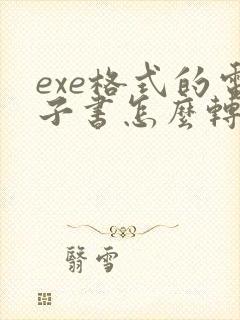 exe格式的電
子書怎麼轉
翳雪